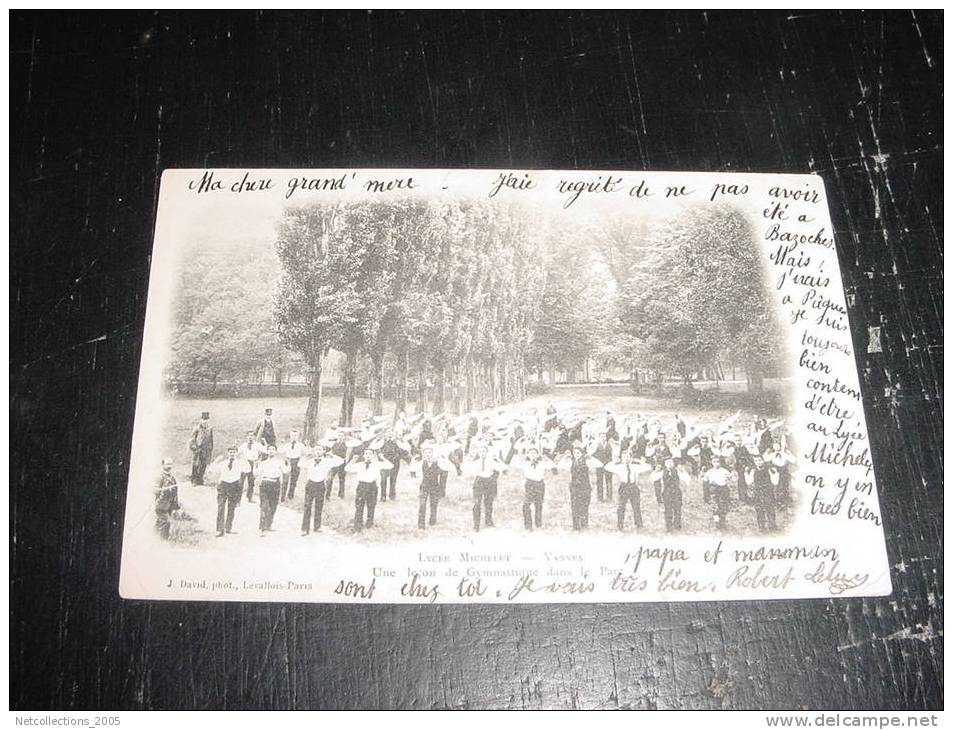 Ma chere grand' mere ! J'aie regrité de ne pas avoir
été a
Bazoches.
Mais
j'irais
a Pâques
je suis
toujours
bien
contem
d'etre
au lyée
Michelet
on y en
tres bien
, papa et mamman
sont chez toi. Je vais très bien. Robert
LYCÉE MICHELET — VANVES
Une leçon de Gymnastique dans le Parc
J. David, phot., Levallois-Paris
Netcollections_2005
http://www.delcampe.net